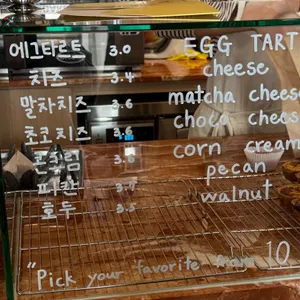 에그타르트 3.0 EGG TART
치즈 3.4 cheese
말차치즈 3.6 matcha cheese
초코치즈 3.6 choco cheese
콘크림 3.8 corn cream
피칸 3.7 pecan
호두 3.5 walnut
"Pick your favorite from 10